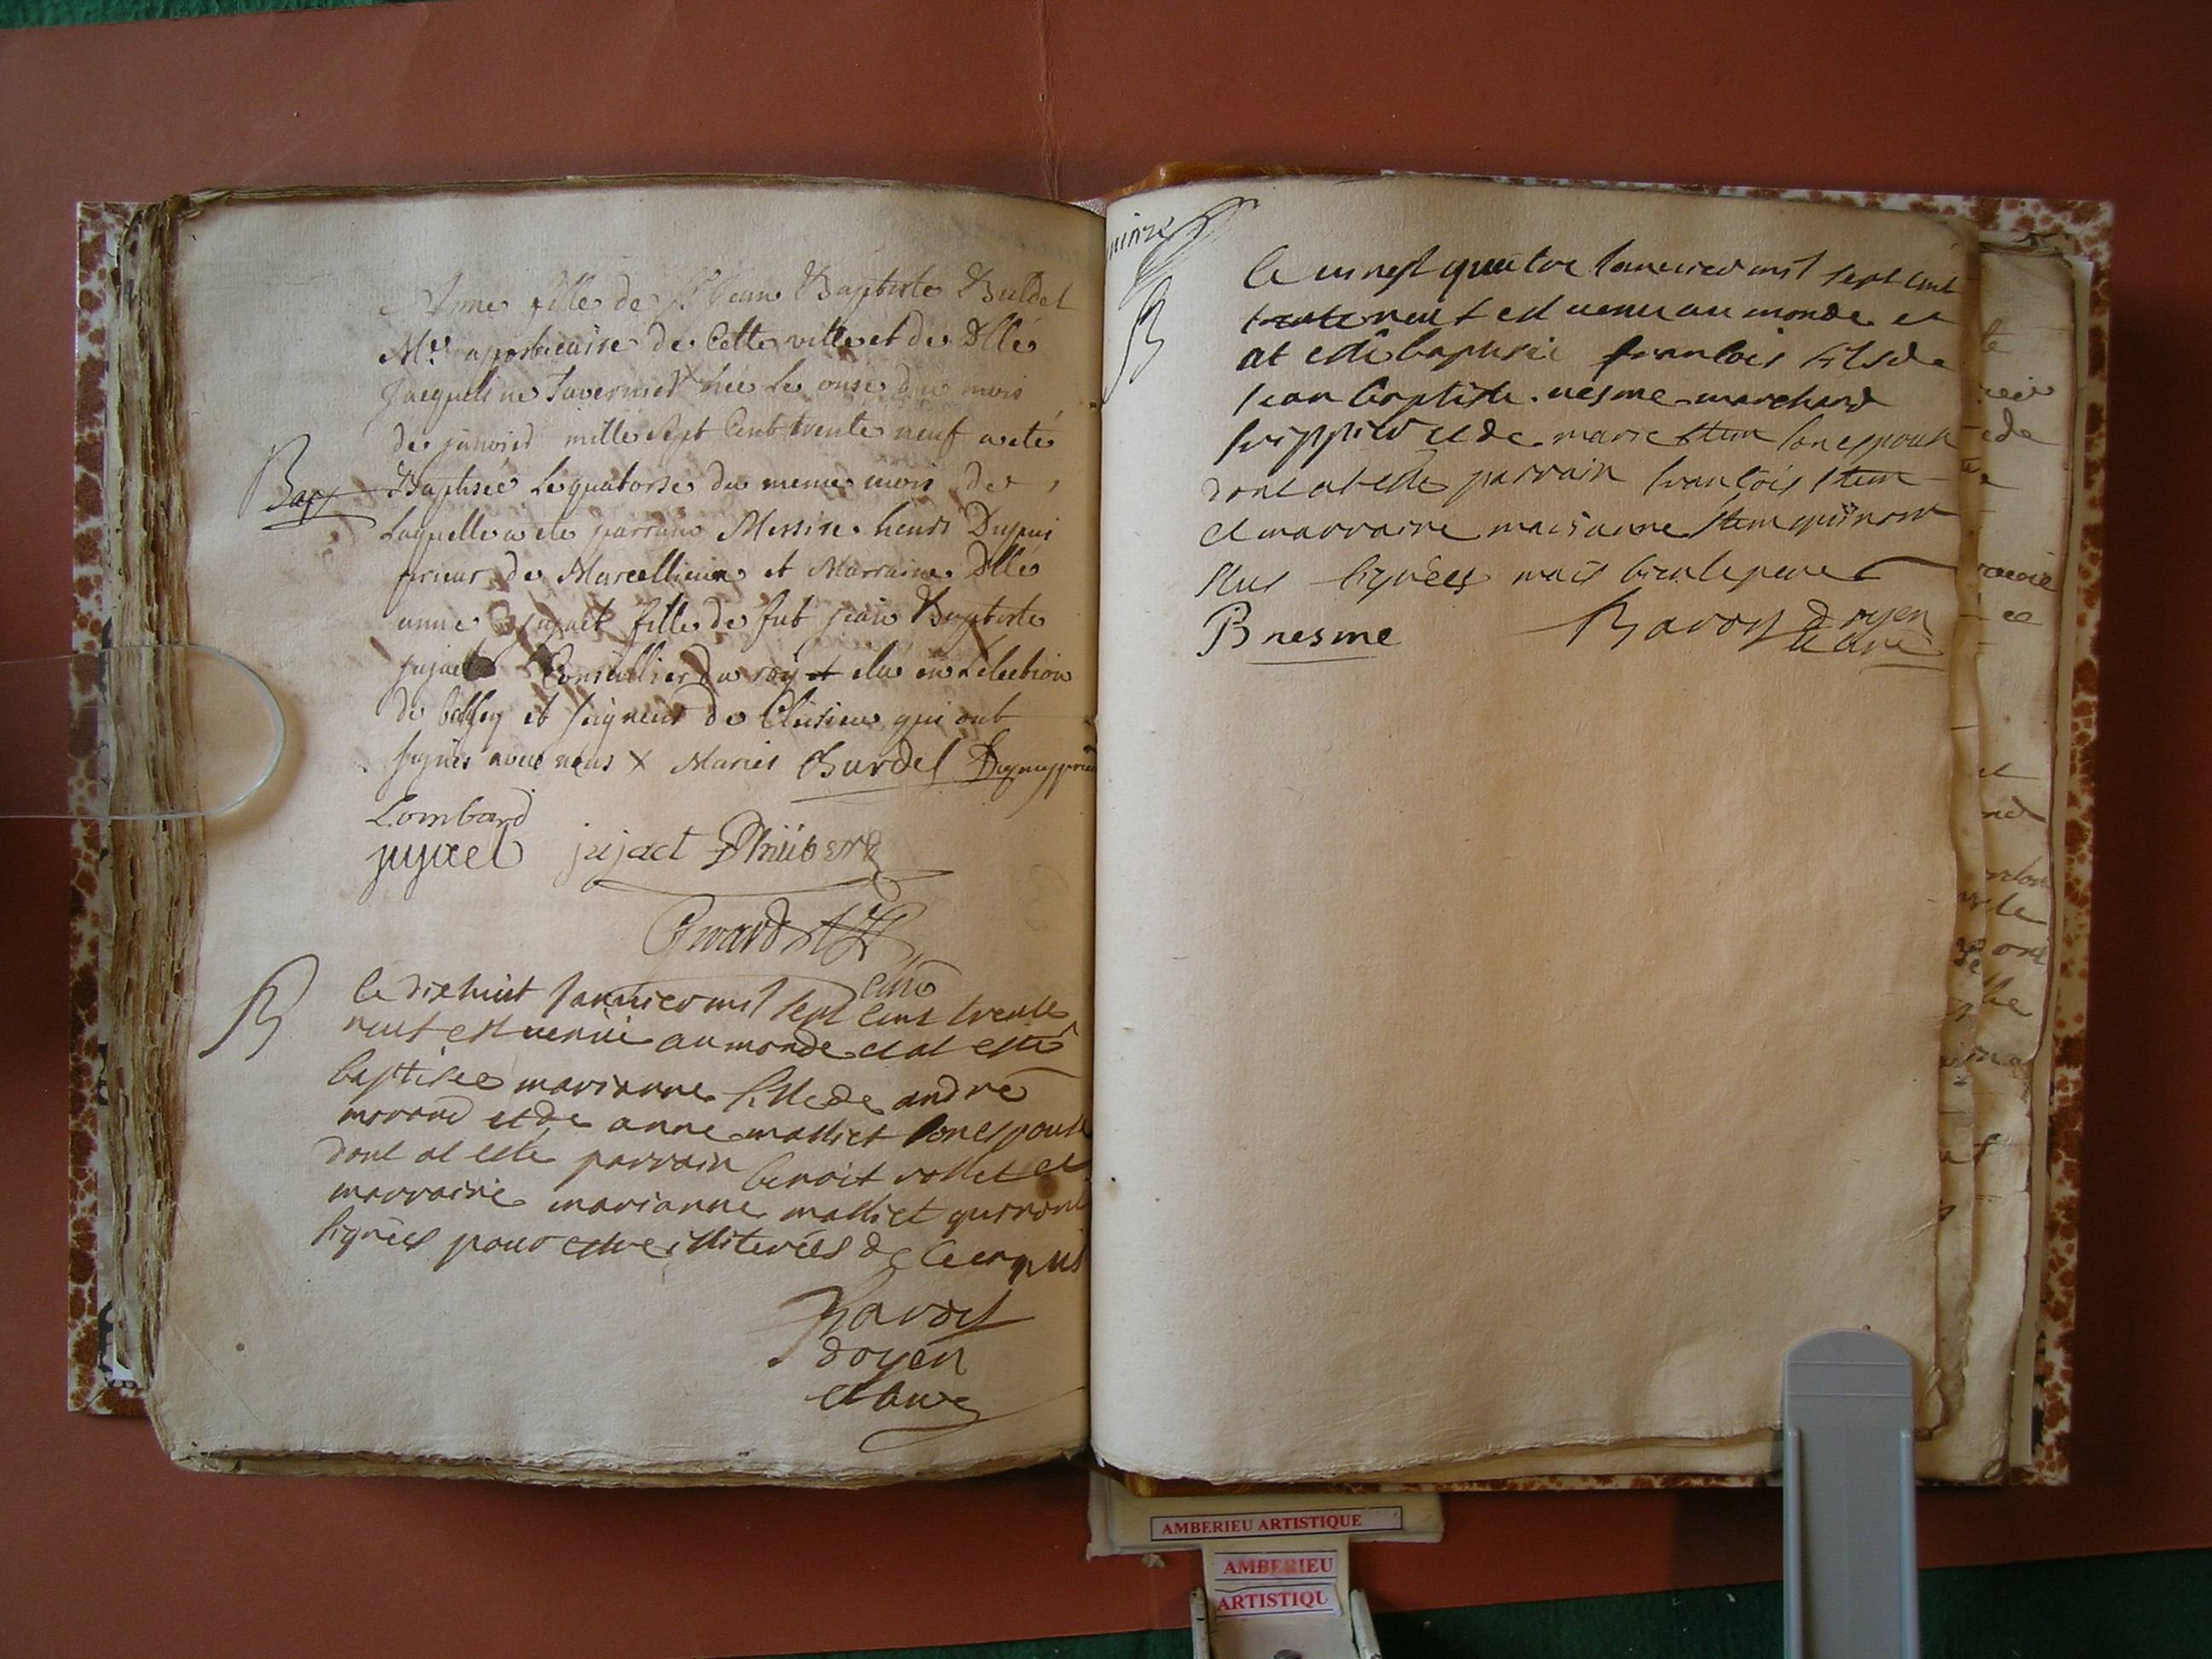 Anne fille de Sr Jean Baptiste Burdel
Me apothicaire de Cette ville et de Dlle
Jacqueline Tavernier née le onse du mois
de janvier mille sept Cent trente neuf a eté
Bap
Baptisée le quatorse du meme mois de
Laquelle a ete parrain Messire henri Dupui
prieur de Marcellieux et Marraine Dlle
anne jujact fille de fut jean Baptiste
jujact Conseillier du roy et elu en Lelection
de belley et seigneur de
qui ont
signés avec nous X Maries Burdel Dupuy prieur
Lombard
jujact jujact Philibert
Girard
B
le dixhuit janvier mil sept cent trente
neuf est venüe au monde et at esté
baptisee marianne fille de andre
morand et de anne malliet son espouse
dont at esté parrain benoit rollet et
marraine marianne malliet qui nont
signées pour estre illiterées de ce enquis
Ravoy
doyen
et curé
B
le vingt quatre janvier mil sept cent
trente neuf est venu au monde et
at esté baptisé francois fils de
jean baptiste nesme marchand
frippier et de marie son espouse
dont at esté parrain francois
et marraine marianne qui nont
signées mais bien le pere
B nesme Ravoy doyen
et curé
AMBERIEU ARTISTIQUE
AMBERIEU
ARTISTIQU